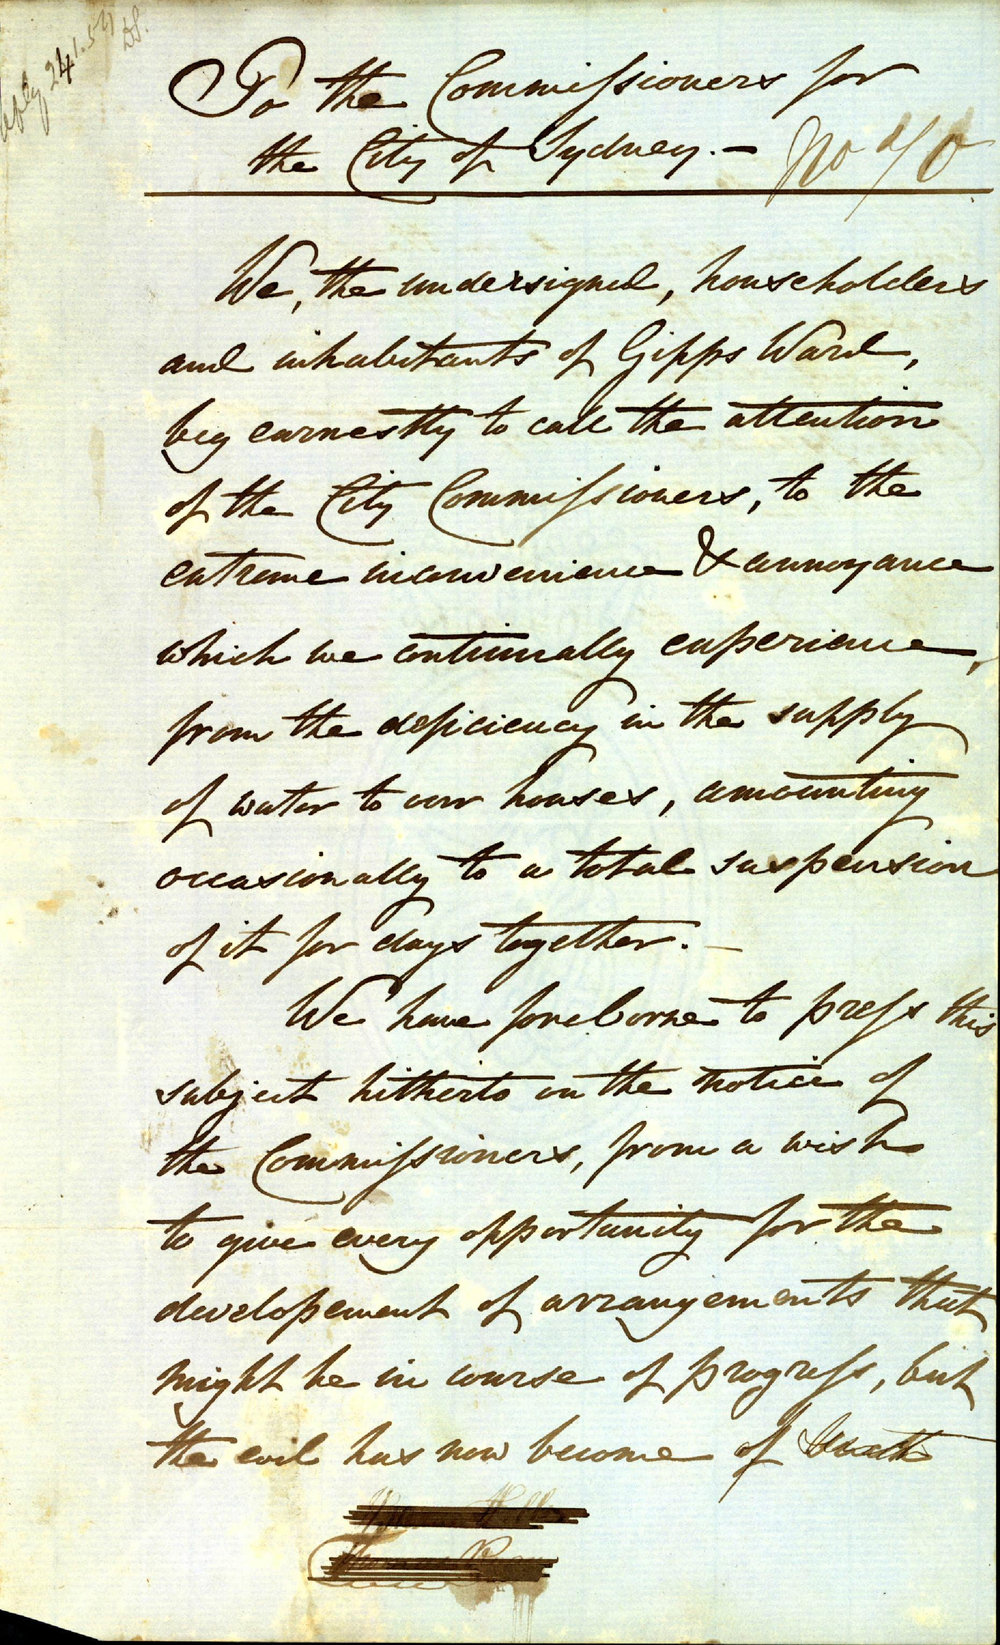 To the Commissioners for
the City of Sydney. —
No 40
We, the undersigned, householders
and inhabitants of Gipps Ward,
beg earnestly to call the attention
of the City Commissioners, to the
extreme inconvenience & annoyance
which we continually experience,
from the deficiency in the supply
of water to our houses, amounting
occasionally to a total suspension
of it for days together. —
We have foreborne to press this
subject hitherto on the notice of
the Commissioners, from a wish
to give every opportunity for the
developement of arrangements that
might be in course of progress, but
the evil has now become of